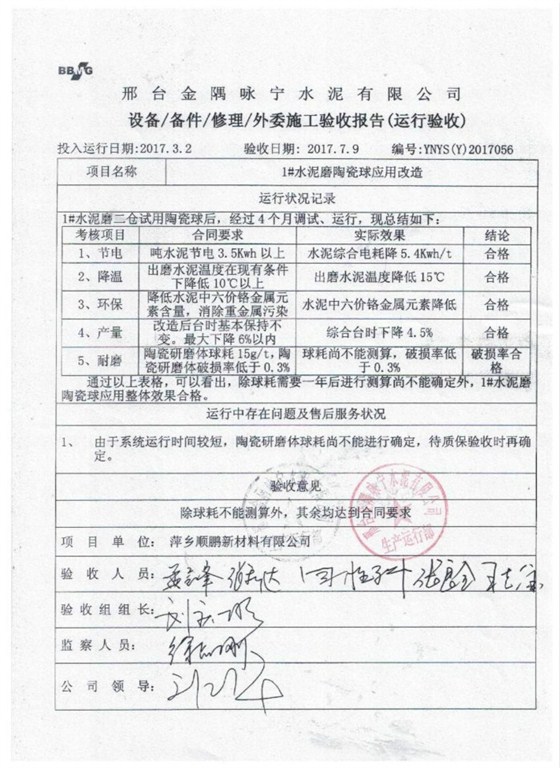 BBMG
邢台金隅咏宁水泥有限公司
设备/备件/修理/外委施工验收报告(运行验收)
投入运行日期:2017.3.2 验收日期:2017.7.9 编号:YNYS(Y)2017056
项目名称 1#水泥磨陶瓷球应用改造
运行状况记录
1#水泥磨二仓试用陶瓷球后，经过4个月调试、运行，现总结如下：
考核项目 合同要求 实际效果 结论
1、节电 吨水泥节电3.5Kwh以上 水泥综合电耗降5.4Kwh/t 合格
2、降温 出磨水泥温度在现有条件
下降低10℃以上 出磨水泥温度降低15℃ 合格
3、环保 降低水泥中六价铬金属元
素含量，消除重金属污染 水泥中六价铬金属元素降低 合格
4、产量 改造后台时基本保持不
变。最大下降6%以内 综合台时下降4.5% 合格
5、耐磨 陶瓷研磨体球耗15g/t，陶
瓷研磨体破损率低于0.3% 球耗尚不能测算，破损率低
于0.3% 破损率合
格
通过以上表格，可以看出，除球耗需要一年后进行测算尚不能确定外，1#水泥磨
陶瓷球应用整体效果合格。
运行中存在问题及售后服务状况
1、 由于系统运行时间较短，陶瓷研磨体球耗尚不能进行确定，待质保验收时再确
定。
验收意见
除球耗不能测算外，其余均达到合同要求
项目单位： 萍乡顺鹏新材料有限公司
生产运行部
验收人员：
验收组组长：
监察人员：
公司领导：